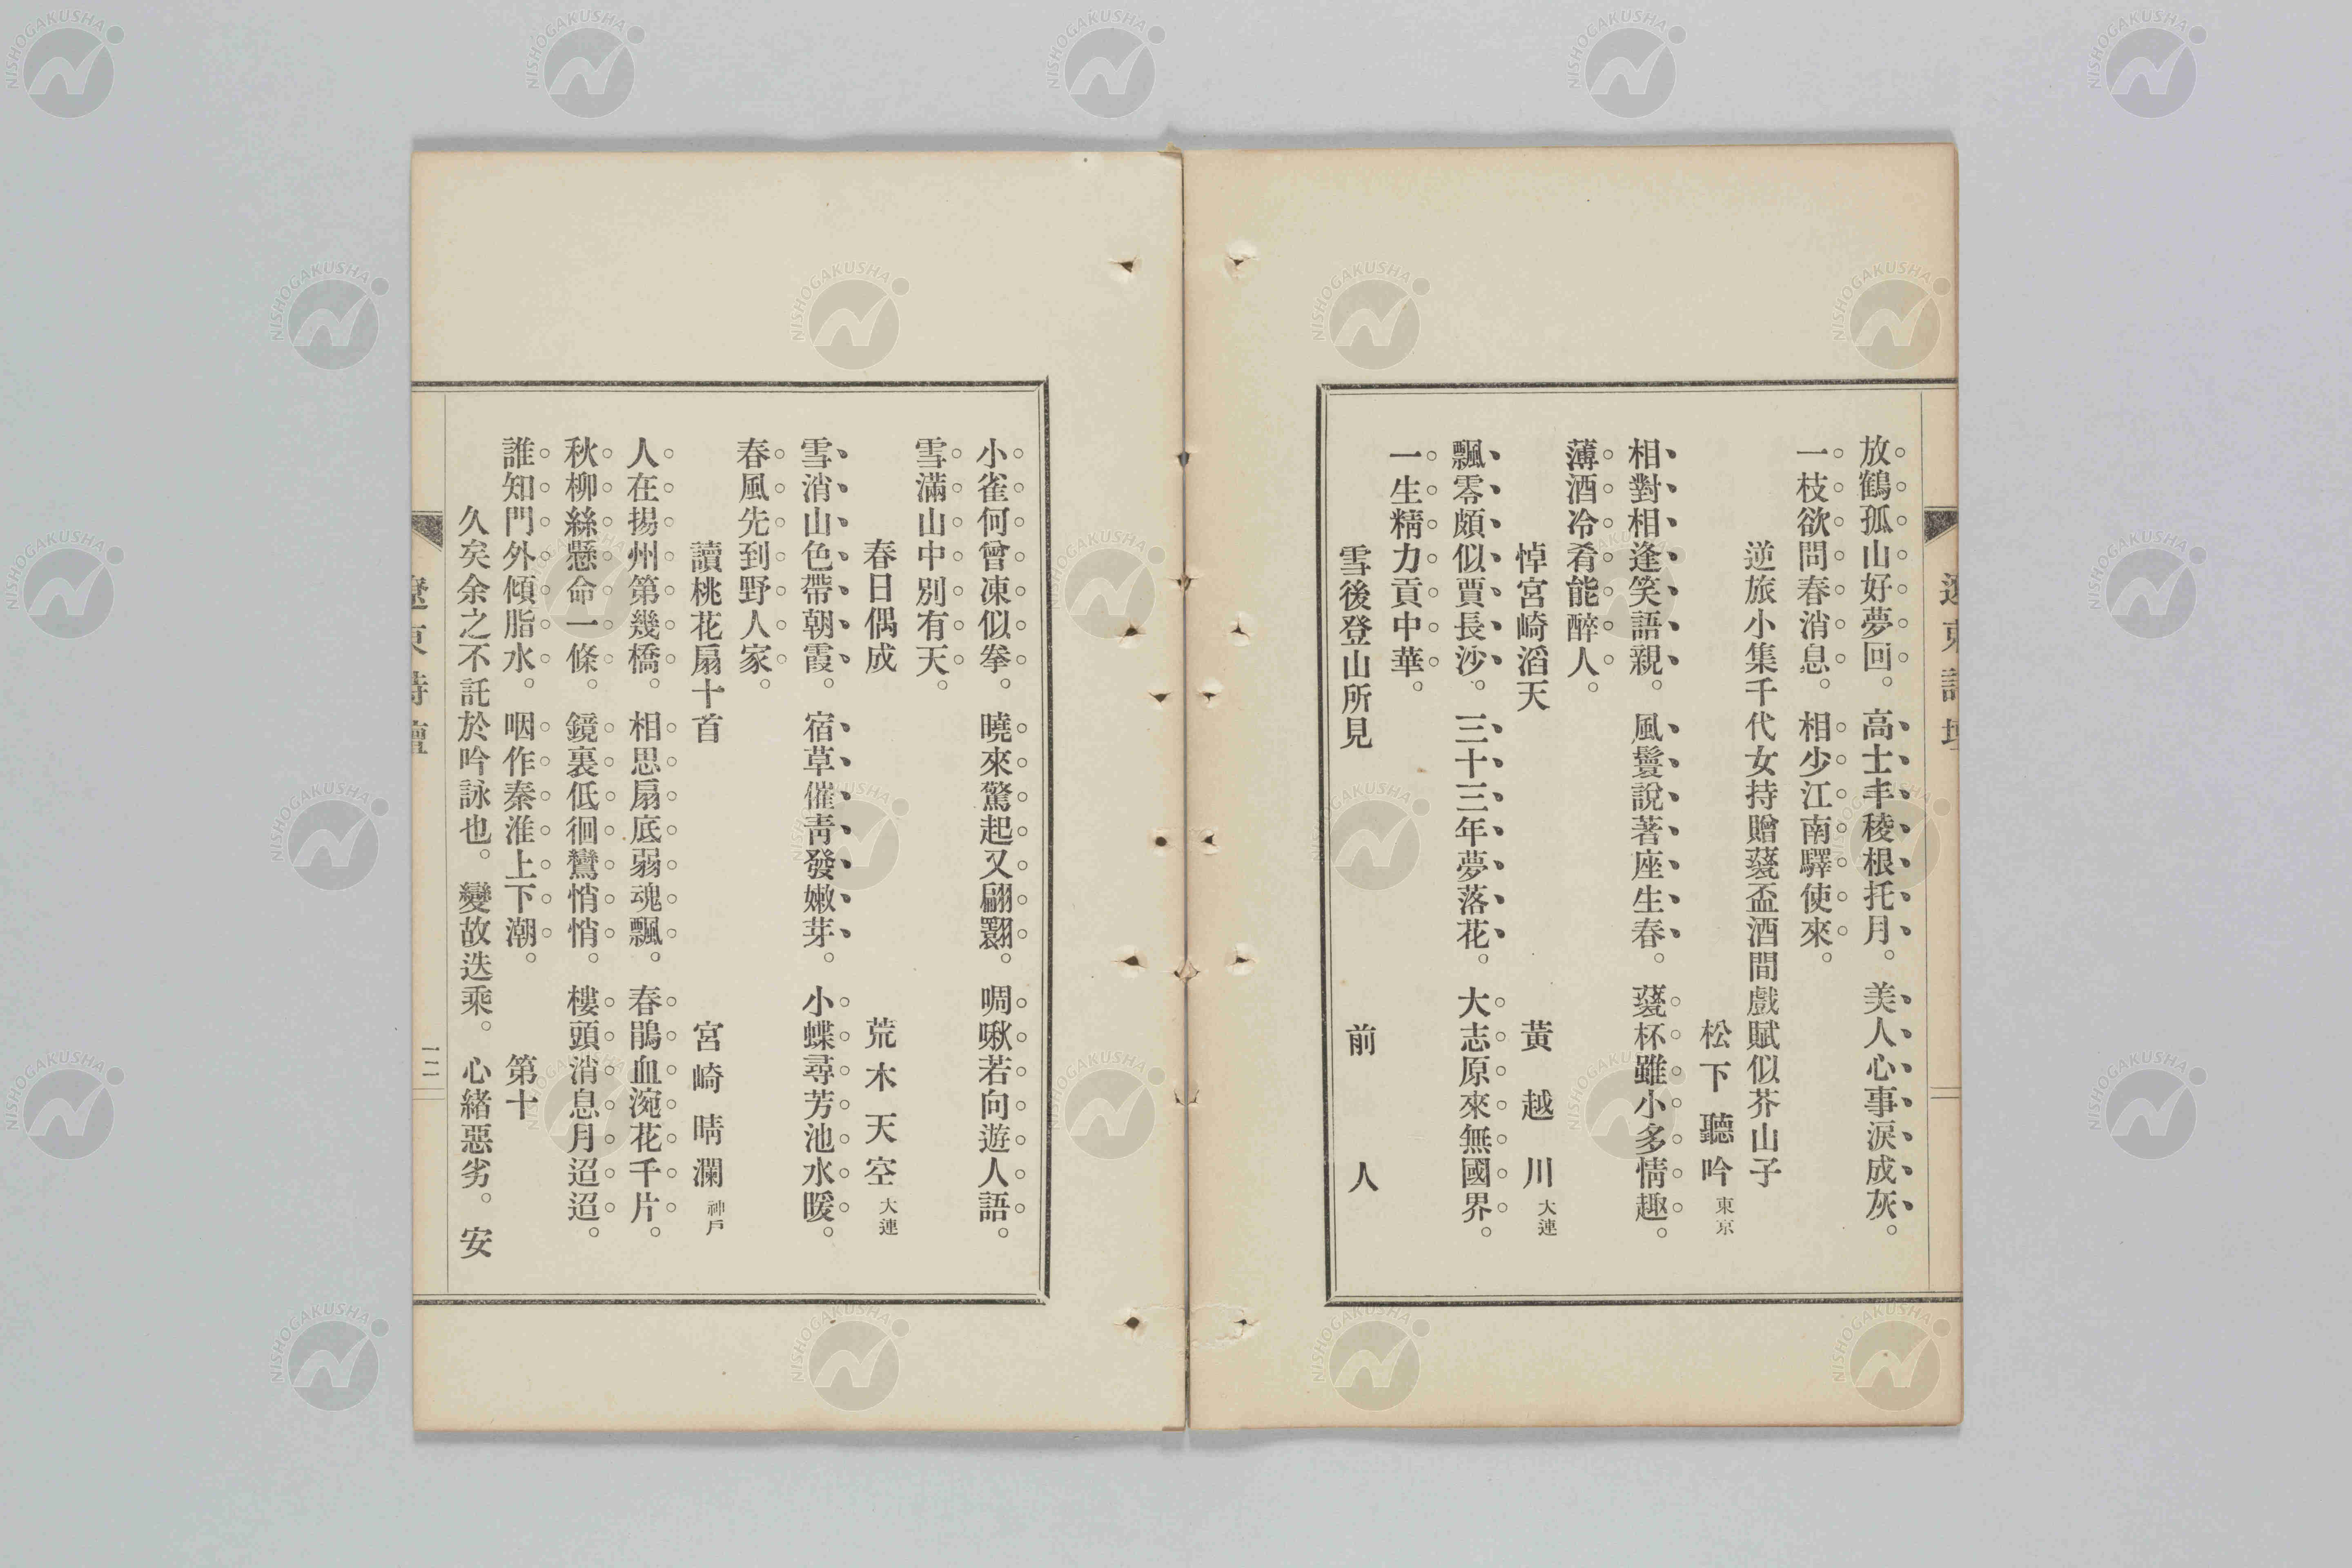 放鶴孤山好夢回。高士丰稜根托月。美人心事淚成灰。
一枝欲問春消息。相少江南驛使來。
逆旅小集千代女持贈蕿盃酒間戲賦似芥山子
松下聽吟 東京
相對相逢笑語親。風鬟說著座生春。蕿杯雖小多情趣。
薄酒冷肴能醉人。
悼宮崎滔天 黃越川 大連
飄零頗似賈長沙。三十三年夢落花。大志原來無國界。
一生精力貢中華。
雪後登山所見 前人
小雀何曾凍似拳。曉來驚起又翩翾。啁啾若向遊人語。
雪滿山中別有天。
春日偶成 荒木天空 大連
雪消山色帶朝霞。宿草催靑發嫩芽。小蝶尋芳池水暖。
春風先到野人家。
讀桃花扇十首 宮崎晴瀾 神戶
人在揚州第幾橋。相思扇底弱魂飄。春鵑血涴花千片。
秋柳絲懸命一條。鏡裏低徊鸞悄悄。樓頭消息月迢迢。
誰知門外傾脂水。咽作秦淮上下潮。 第十
久矣余之不託於吟詠也。變故迭乘。心緒惡劣。安
遼東詩壇 一二
NISHOGAKUSHA